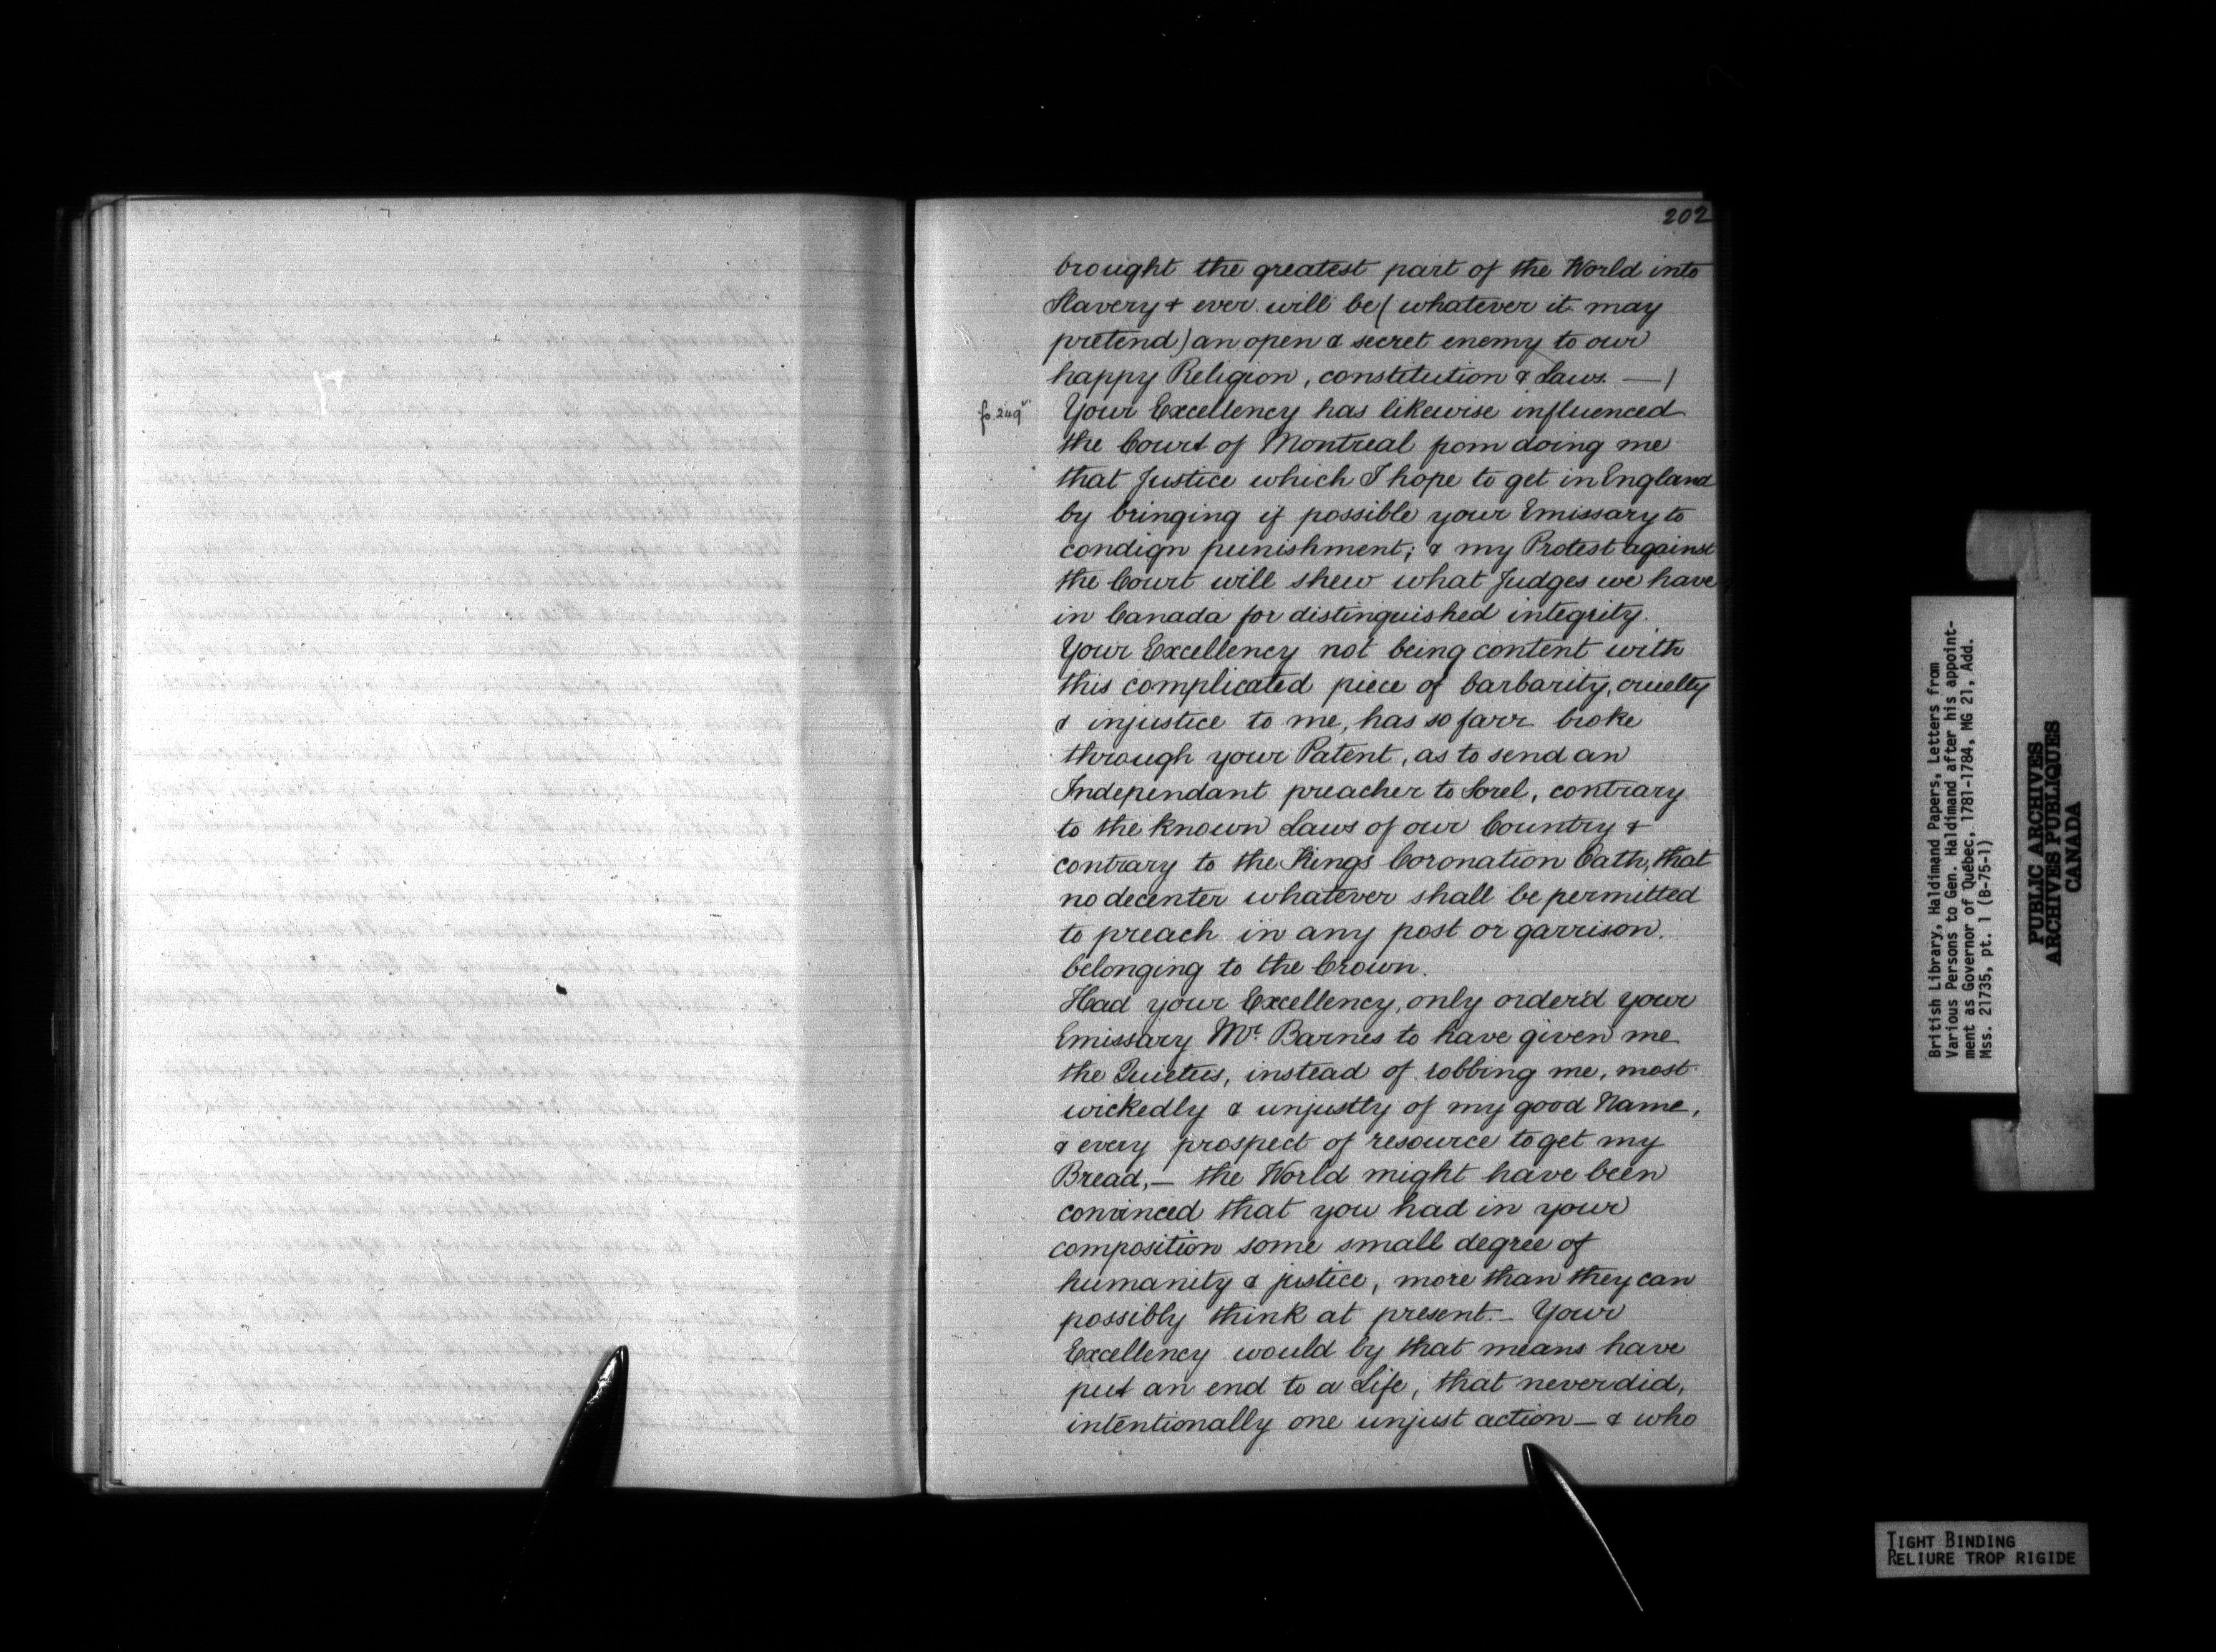 202
brought the greatest part of the World into
Slavery & ever will be ( whatever it may
pretend ) an open & secret enemy to our
happy Religion, constitution & Laws. — )
fo. 249v.
Your Excellency has likewise influenced
the Court of Montreal from doing me
that Justice which I hope to get in England
by bringing if possible your Emissary to
condign punishment; & my Protest against
the Court will shew what Judges we have
in Canada for distinguished integrity.
Your Excellency not being content with
this complicated piece of barbarity, cruelty
& injustice to me, has so farr broke
through your Patent, as to send an
Independant preacher to Sorel, contrary
to the known Laws of our Country &
contrary to the Kings Coronation Oath, that
no decenter whatever shall be permitted
to preach in any post or garrison.
belonging to the Crown.
Had your Excellency, only order'd your
Emissary Mr. Barnes to have given me
the Quietus, instead of robbing me, most
wickedly & unjustly of my good Name,
& every prospect of resource to get my
Bread, — the World might have been
convinced that you had in your
composition some small degree of
humanity & justice, more than they can
possibly think at present. — Your
Excellency would by that means have
put an end to a Life, that never did,
intentionally one unjust action — & who
British Library, Haldimand Papers, Letters from
Various Persons to Gen. Haldimand after his appoint-
ment as Governor of Québec, 1781-1784, MG 21, Add.
Mss. 21735, pt. 1 (B-75-1)
PUBLIC ARCHIVES
ARCHIVES PUBLIQUES
CANADA
TIGHT BINDING
RELIURE TROP RIGIDE